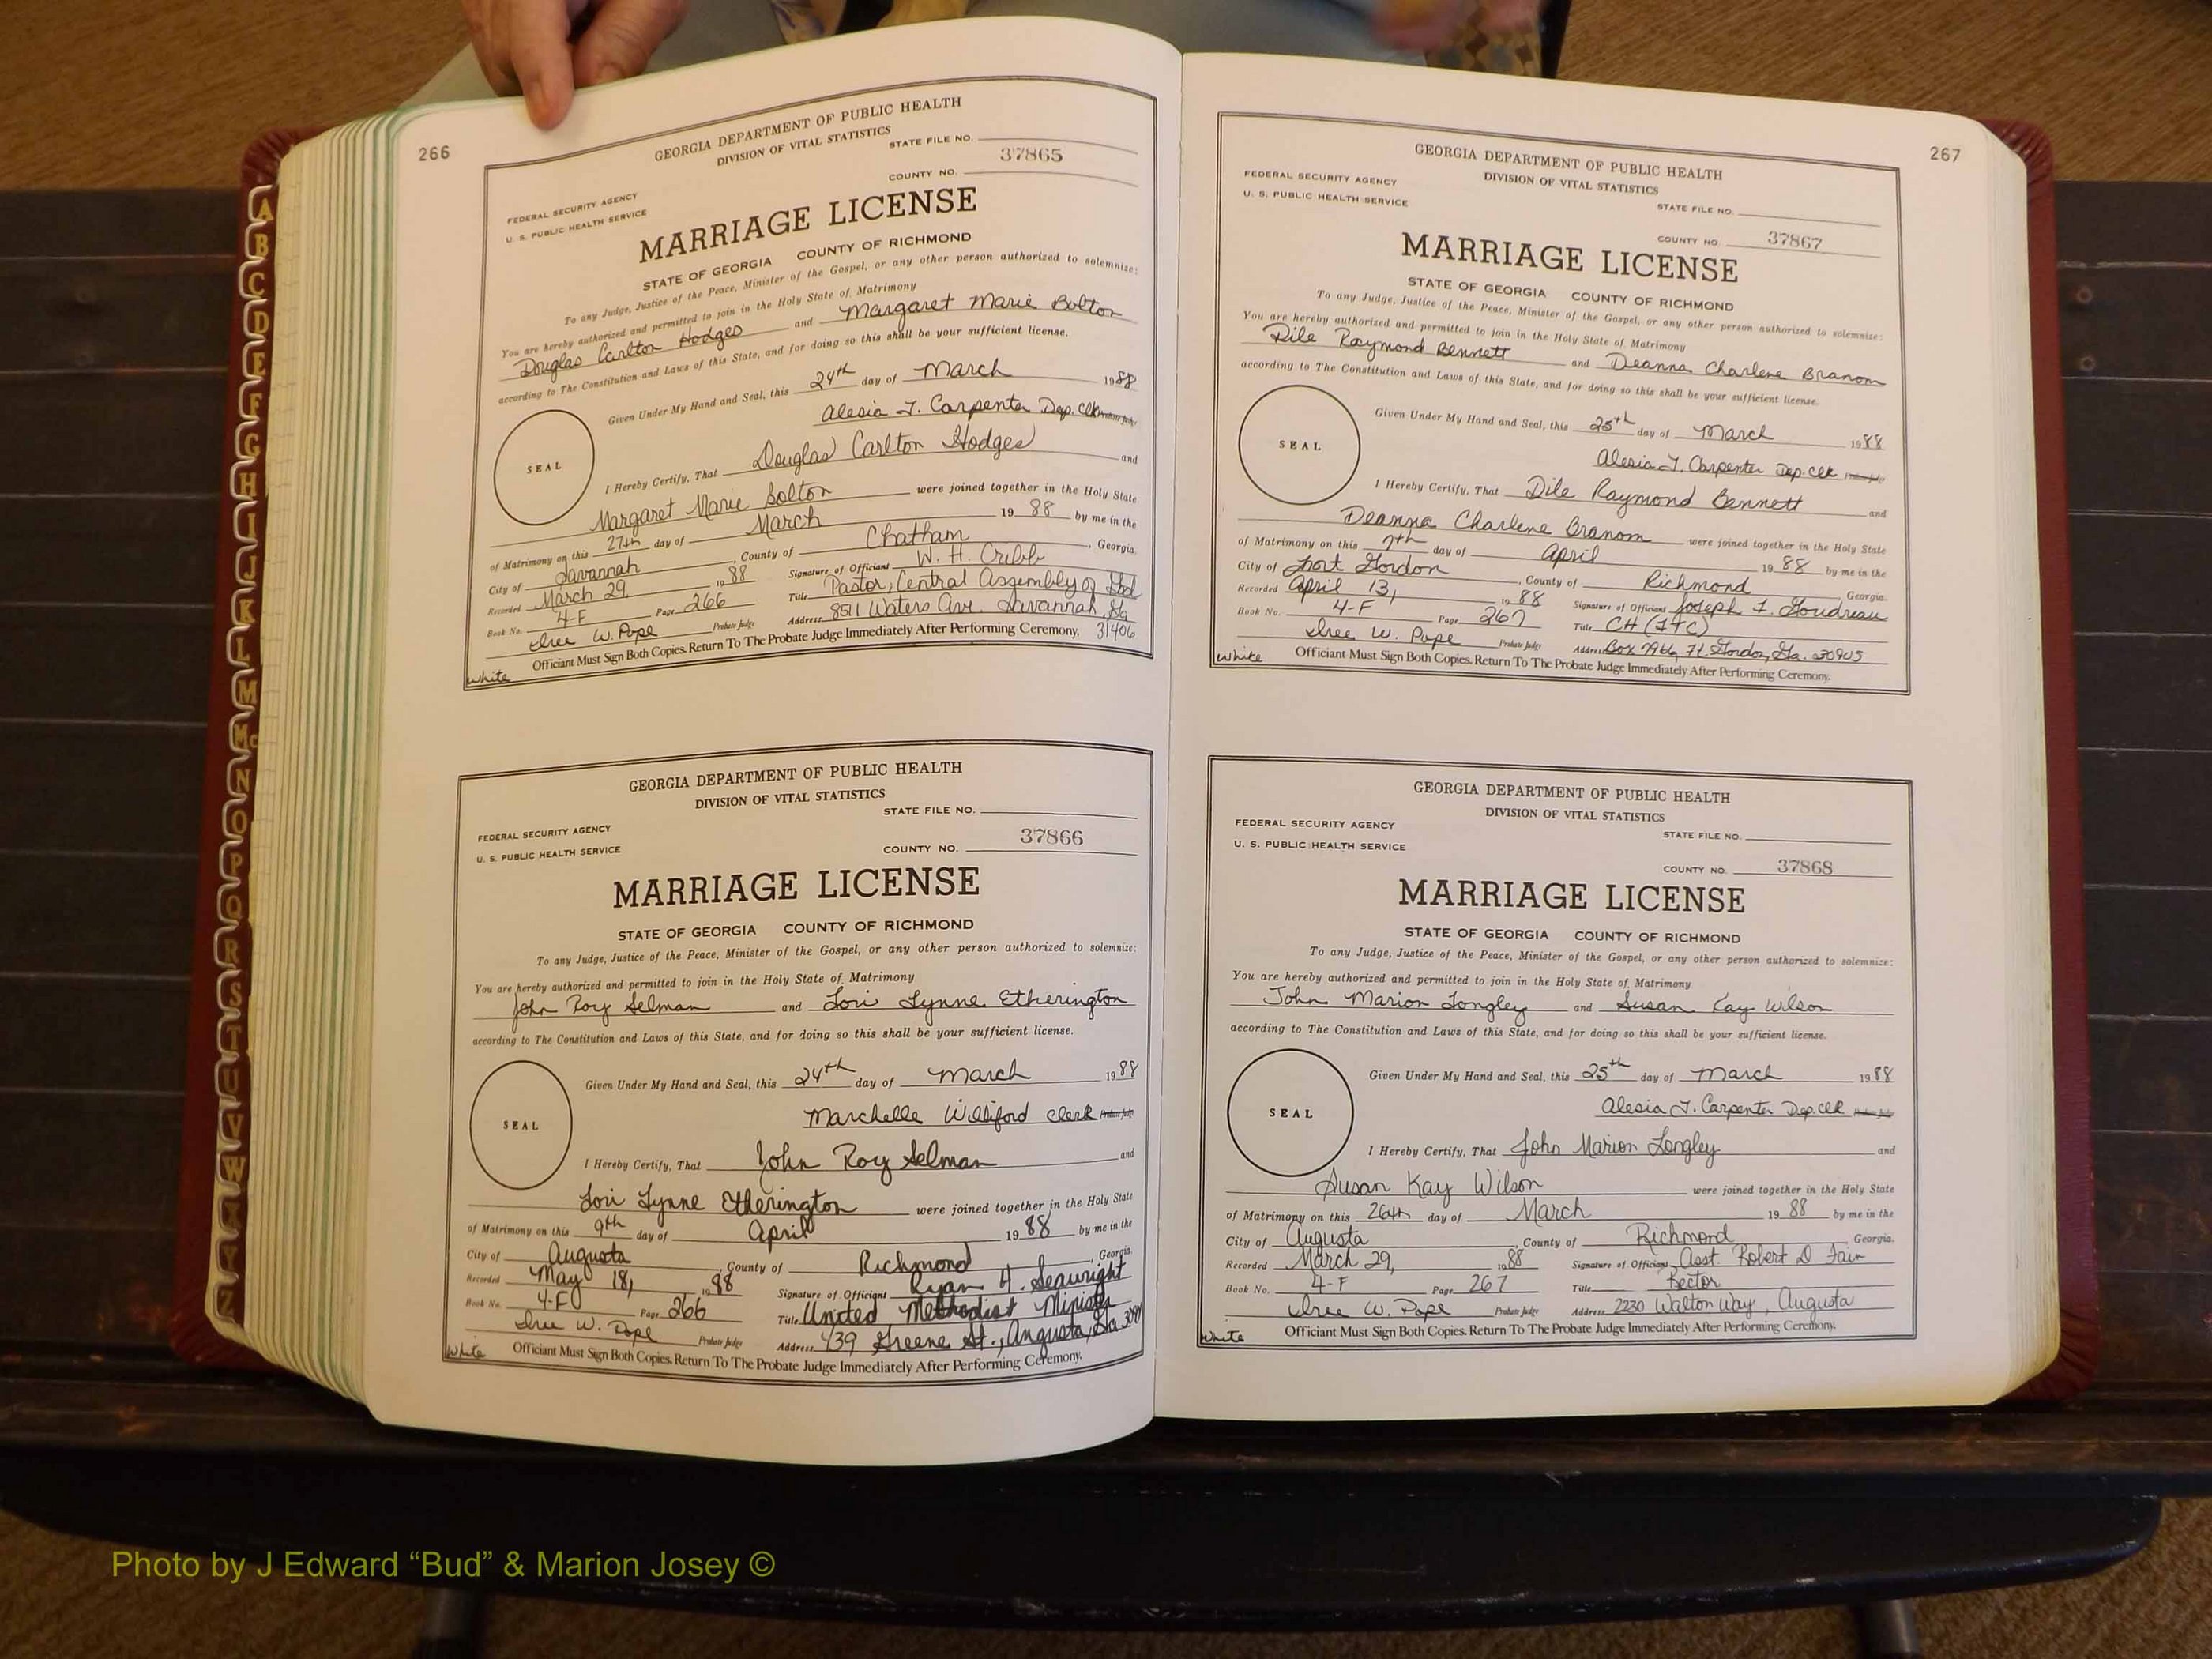 266
GEORGIA DEPARTMENT OF PUBLIC HEALTH
DIVISION OF VITAL STATISTICS
STATE FILE NO.
37865
COUNTY NO.
FEDERAL SECURITY AGENCY
U. S. PUBLIC HEALTH SERVICE
MARRIAGE LICENSE
STATE OF GEORGIA COUNTY OF RICHMOND
To any Judge, Justice of the Peace, Minister of the Gospel, or any other person authorized to solemnize:
You are hereby authorized and permitted to join in the Holy State of Matrimony
Douglas Carlton Hodges and Margaret Marie Bolton
according to The Constitution and Laws of this State, and for doing so this shall be your sufficient license.
Given Under My Hand and Seal, this 24th day of March 1988
Alesia T. Carpenter Dep. Clk Probate Judge
SEAL
I Hereby Certify, That Douglas Carlton Hodges and
Margaret Marie Bolton were joined together in the Holy State
of Matrimony on this 27th day of March 19 88 by me in the
City of Savannah, County of Chatham, Georgia.
Recorded March 29, 19 88 Signature of Officiant W. H. Cribb
Book No. 4-F Page 266 Title Pastor, Central Assembly of God
Iree W. Pope Probate Judge Address 8511 Waters Ave. Savannah, Ga 31406
Officiant Must Sign Both Copies. Return To The Probate Judge Immediately After Performing Ceremony.
White
GEORGIA DEPARTMENT OF PUBLIC HEALTH
DIVISION OF VITAL STATISTICS
STATE FILE NO.
FEDERAL SECURITY AGENCY
U. S. PUBLIC HEALTH SERVICE
COUNTY NO. 37866
MARRIAGE LICENSE
STATE OF GEORGIA COUNTY OF RICHMOND
To any Judge, Justice of the Peace, Minister of the Gospel, or any other person authorized to solemnize:
You are hereby authorized and permitted to join in the Holy State of Matrimony
John Roy Selman and Lori Lynne Etherington
according to The Constitution and Laws of this State, and for doing so this shall be your sufficient license.
Given Under My Hand and Seal, this 24th day of March 1988
Marchelle Williford Clerk Probate Judge
SEAL
I Hereby Certify, That John Roy Selman and
Lori Lynne Etherington were joined together in the Holy State
of Matrimony on this 9th day of April 19 88 by me in the
City of Augusta, County of Richmond Georgia.
Recorded May 18, 19 88 Signature of Officiant Ryan H. Seawright
Book No. 4-F Page 266 Title United Methodist Minister
Iree W. Pope Probate Judge Address 439 Greene St., Augusta, Ga
Officiant Must Sign Both Copies. Return To The Probate Judge Immediately After Performing Ceremony.
White
267
GEORGIA DEPARTMENT OF PUBLIC HEALTH
DIVISION OF VITAL STATISTICS
FEDERAL SECURITY AGENCY
U. S. PUBLIC HEALTH SERVICE
STATE FILE NO.
COUNTY NO. 37867
MARRIAGE LICENSE
STATE OF GEORGIA COUNTY OF RICHMOND
To any Judge, Justice of the Peace, Minister of the Gospel, or any other person authorized to solemnize:
You are hereby authorized and permitted to join in the Holy State of Matrimony
Dile Raymond Bennett and Deanna Charlene Branom
according to The Constitution and Laws of this State, and for doing so this shall be your sufficient license.
Given Under My Hand and Seal, this 25th day of March 1988
Alesia T. Carpenter Dep. Clk Probate Judge
SEAL
I Hereby Certify, That Dile Raymond Bennett and
Deanna Charlene Branom were joined together in the Holy State
of Matrimony on this 7th day of April 19 88 by me in the
City of Fort Gordon, County of Richmond, Georgia.
Recorded April 13, 19 88 Signature of Officiant Joseph F. Goudreau
Book No. 4-F Page 267 Title CH (LTC)
Iree W. Pope Probate Judge Address Box 7966, Ft. Gordon, Ga. 30905
Officiant Must Sign Both Copies. Return To The Probate Judge Immediately After Performing Ceremony.
White
GEORGIA DEPARTMENT OF PUBLIC HEALTH
DIVISION OF VITAL STATISTICS
FEDERAL SECURITY AGENCY
U. S. PUBLIC HEALTH SERVICE
STATE FILE NO.
COUNTY NO. 37868
MARRIAGE LICENSE
STATE OF GEORGIA COUNTY OF RICHMOND
To any Judge, Justice of the Peace, Minister of the Gospel, or any other person authorized to solemnize:
You are hereby authorized and permitted to join in the Holy State of Matrimony
John Marion Longley and Susan Kay Wilson
according to The Constitution and Laws of this State, and for doing so this shall be your sufficient license.
Given Under My Hand and Seal, this 25th day of March 1988
Alesia T. Carpenter Dep. Clk Probate Judge
SEAL
I Hereby Certify, That John Marion Longley and
Susan Kay Wilson were joined together in the Holy State
of Matrimony on this 26th day of March 19 88 by me in the
City of Augusta, County of Richmond Georgia.
Recorded March 29, 1988 Signature of Officiant Asst. Robert D Fain
Book No. 4-F Page 267 Title Rector
Iree W. Pope Probate Judge Address 2230 Walton Way, Augusta
Officiant Must Sign Both Copies. Return To The Probate Judge Immediately After Performing Ceremony.
White
A
B
C
D
E
F
G
H
I
J
K
L
M
Mc
N
O
P
Q
R
S
T
U
V
W
X
Y
Z
Photo by J Edward “Bud” & Marion Josey ©